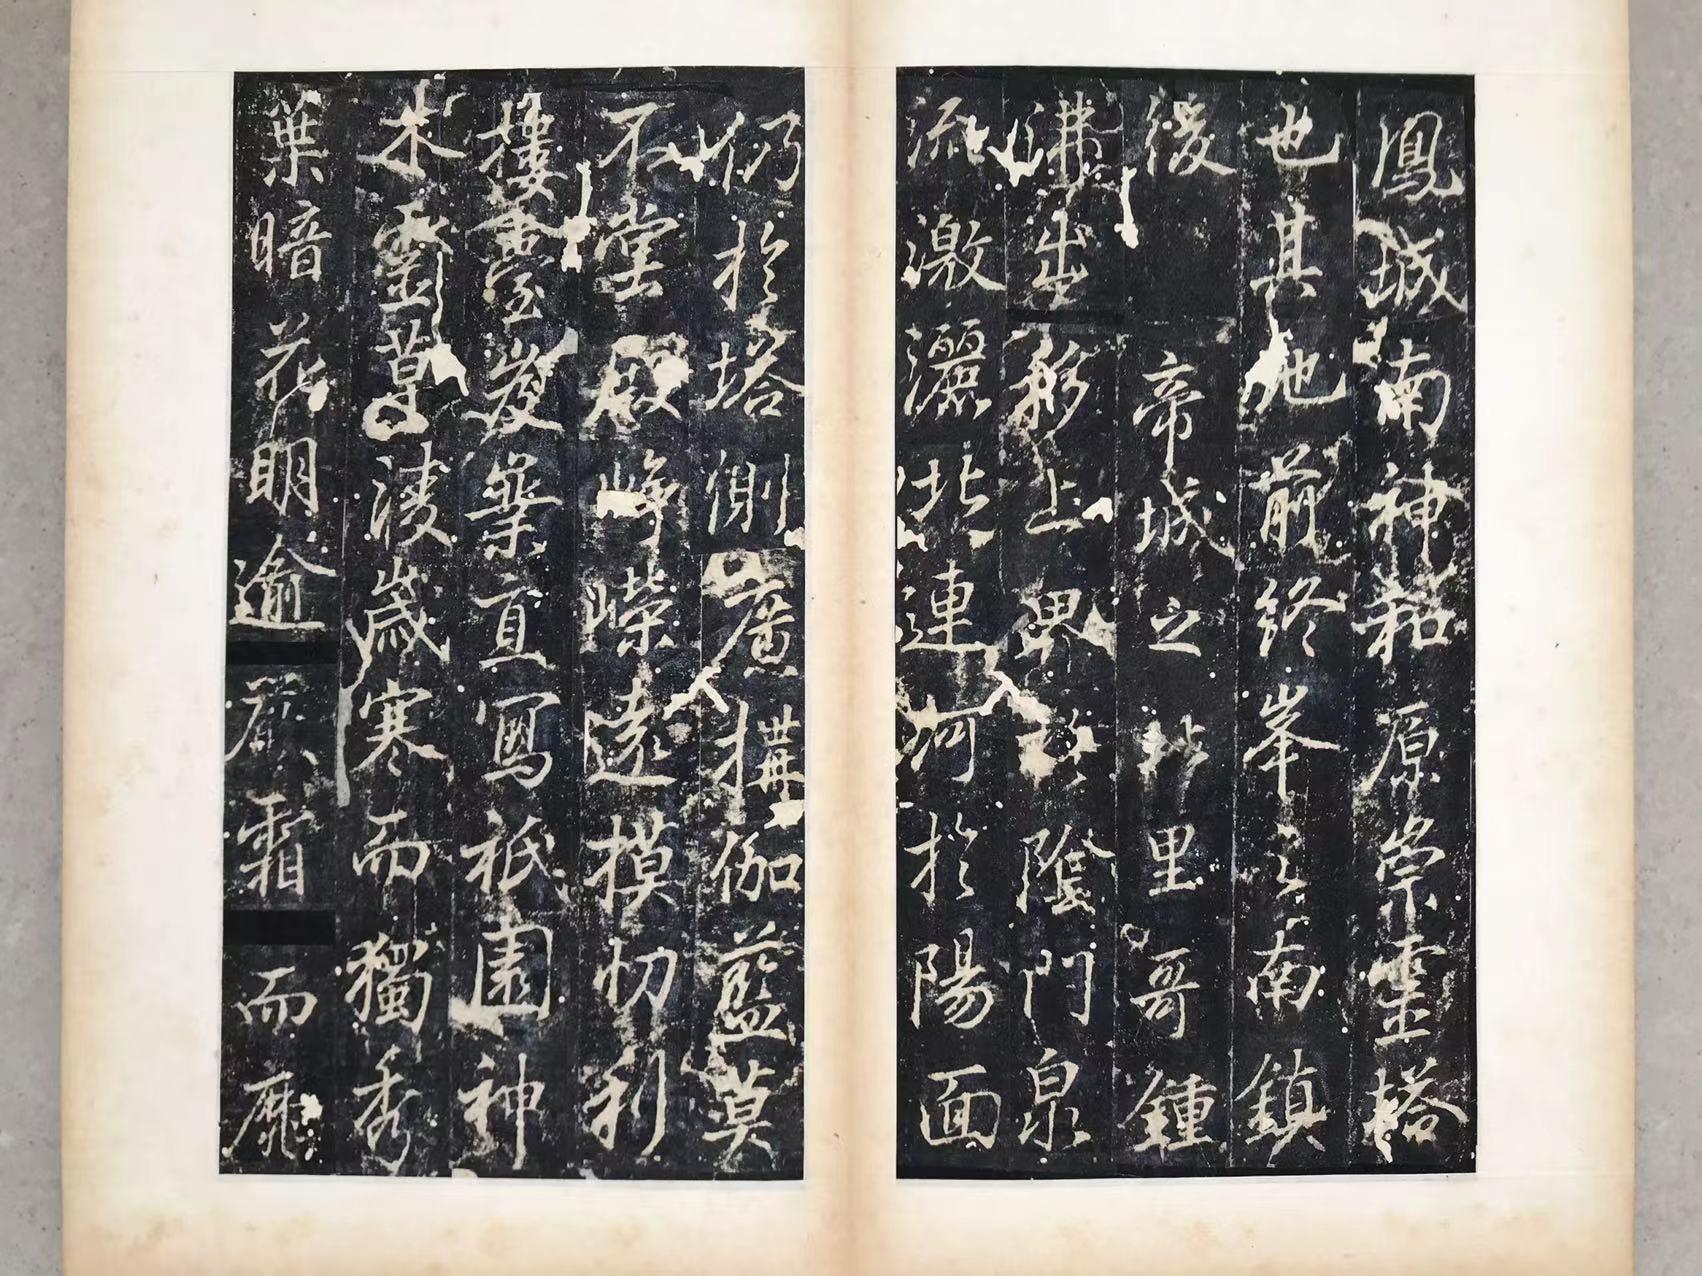 鳳城南神和原崇靈塔
也其地前終峯之南鎮
後帝城之北里哥鍾
沸出移上界於陰門泉
流激灑北連河於陽面
仍於塔側廣構伽藍莫
不堂殿崢嶸遠模忉利
樓臺岌嶪直寫祇園神
木靈草凌歲寒而獨秀
葉暗花明逾嚴霜而靡